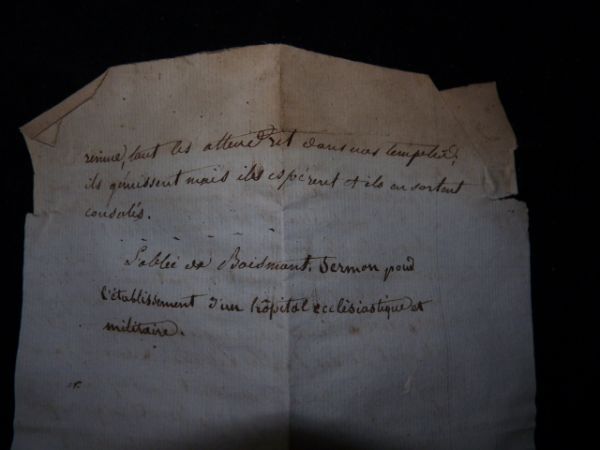 remue, tout les attendrit dans nos temples;
ils gémissent mais ils espérent et ils en sortent
consolés.
L'abbé de Boismont. Sermon pour
l'établissement d'un hôpital ecclésiastique et
militaire.